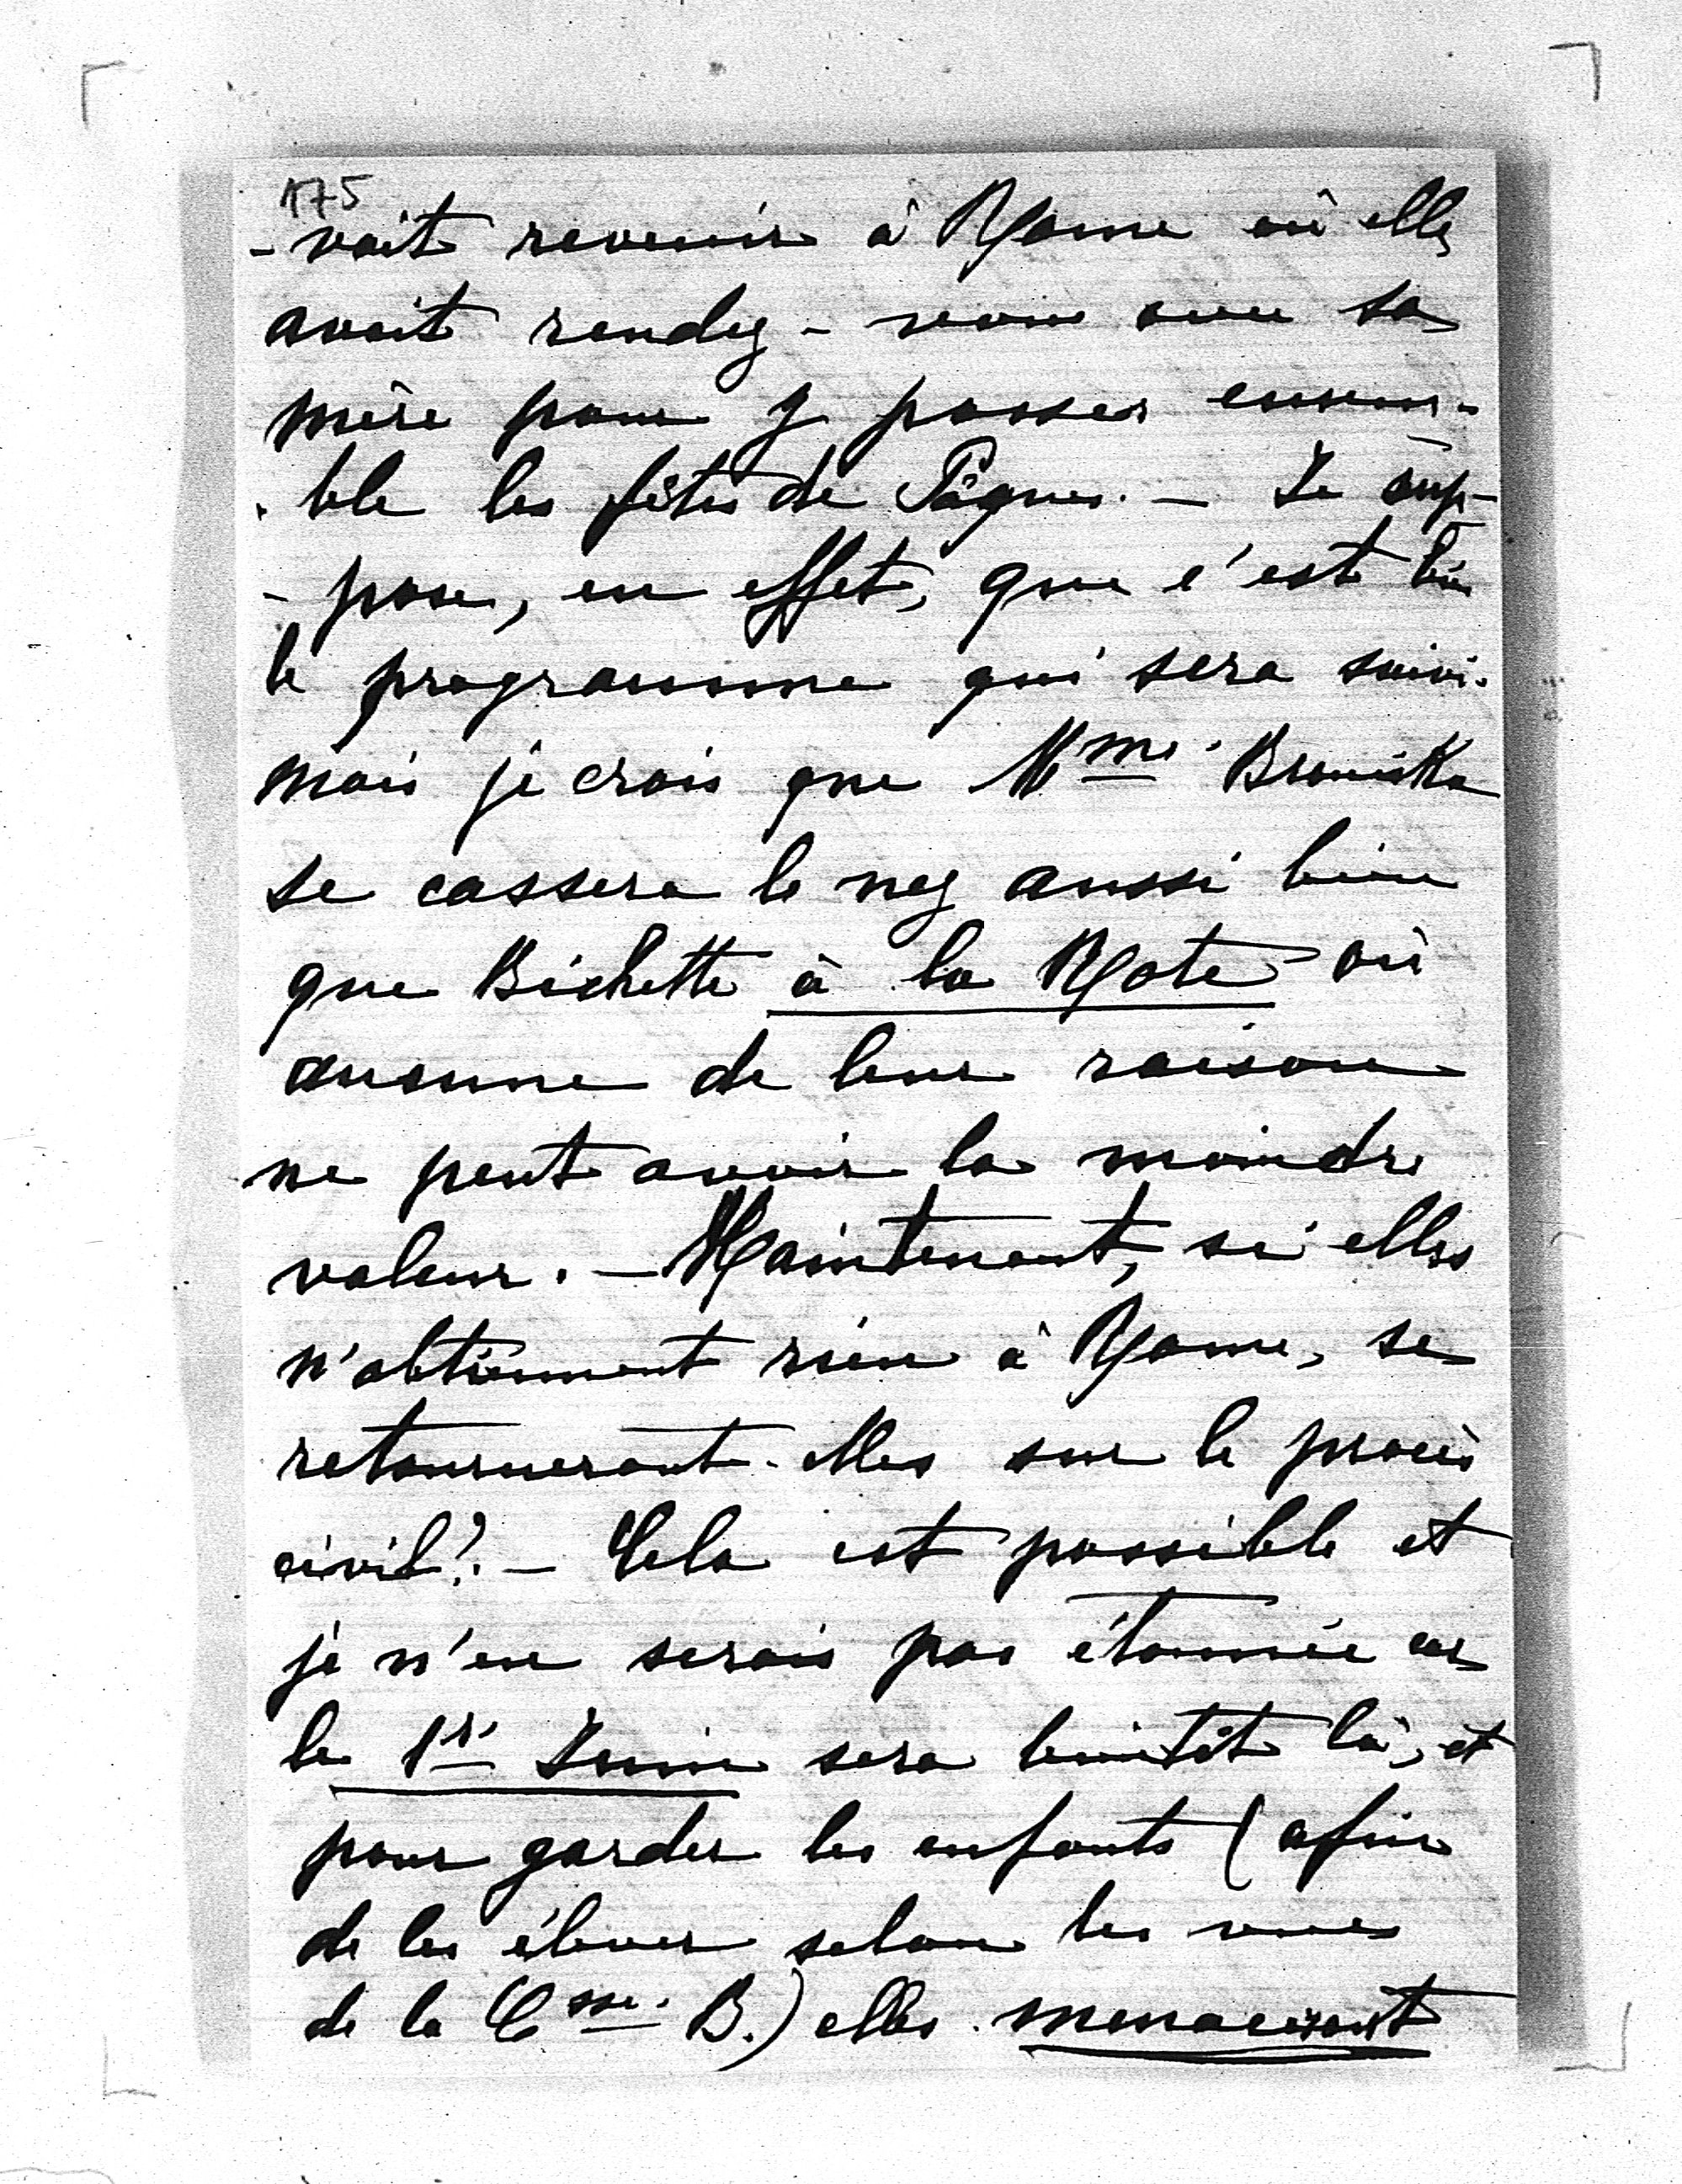 175
-vait revenir à Rome où elle
avait rendez-vous avec sa
mère pour y passer ensem-
-ble les fêtes de Pâques. — Je sup-
-pose, en effet, que c'est bien
le programme qui sera suivi.
mais je crois que Mme. Broniska
se cassera le nez aussi bien
que Bichette à la Rote où
aucune de leur raison
ne peut avoir la moindre
valeur. — Maintenant, si elles
n'obtiennent rien à Rome, se
retourneront-elles sur le procès
civil? — Cela est possible et
je n'en serais pas étonnée car
le 1er Juin sera bientôt là, et
pour garder les enfants (afin
de les élever selon les vues
de la Csse. B.) elles menaceront